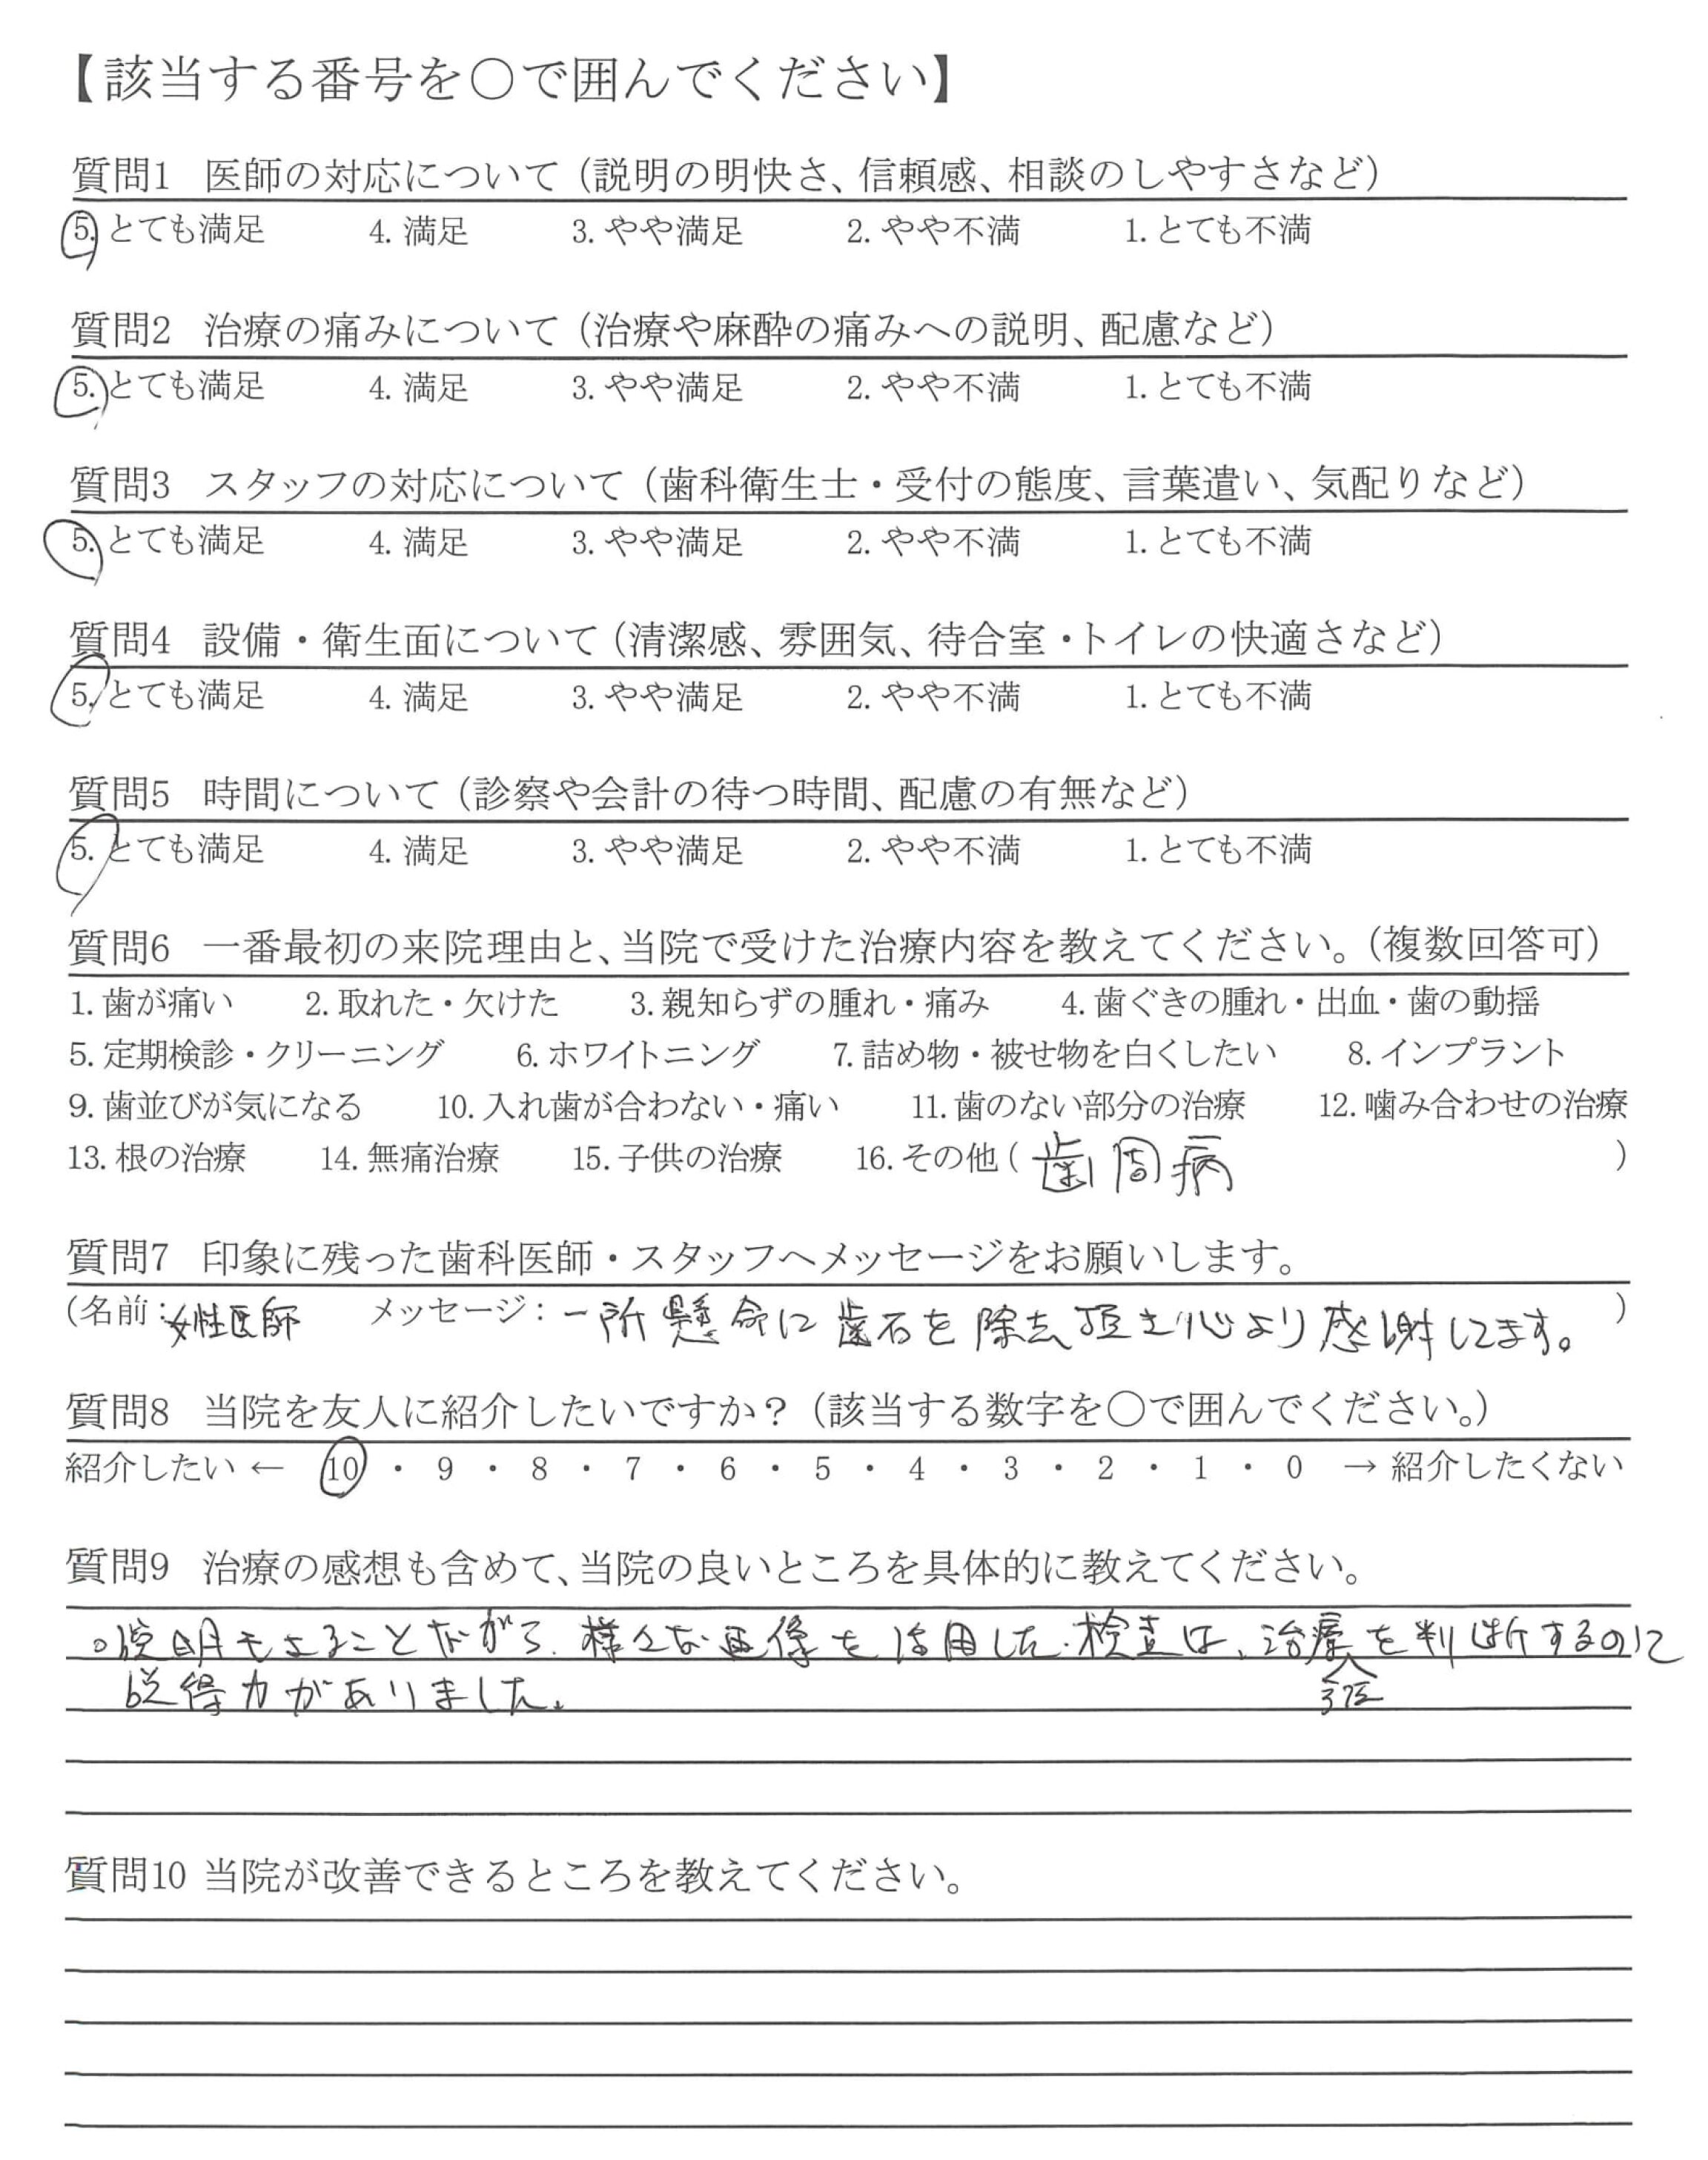 【該当する番号を〇で囲んでください】
質問1 医師の対応について（説明の明快さ、信頼感、相談のしやすさなど）
5. とても満足 4. 満足 3. やや満足 2. やや不満 1. とても不満
質問2 治療の痛みについて（治療や麻酔の痛みへの説明、配慮など）
5. とても満足 4. 満足 3. やや満足 2. やや不満 1. とても不満
質問3 スタッフの対応について（歯科衛生士・受付の態度、言葉遣い、気配りなど）
5. とても満足 4. 満足 3. やや満足 2. やや不満 1. とても不満
質問4 設備・衛生面について（清潔感、雰囲気、待合室・トイレの快適さなど）
5. とても満足 4. 満足 3. やや満足 2. やや不満 1. とても不満
質問5 時間について（診察や会計の待つ時間、配慮の有無など）
5. とても満足 4. 満足 3. やや満足 2. やや不満 1. とても不満
質問6 一番最初の来院理由と、当院で受けた治療内容を教えてください。（複数回答可）
1. 歯が痛い 2. 取れた・欠けた 3. 親知らずの腫れ・痛み 4. 歯ぐきの腫れ・出血・歯の動揺
5. 定期検診・クリーニング 6. ホワイトニング 7. 詰め物・被せ物を白くしたい 8. インプラント
9. 歯並びが気になる 10. 入れ歯が合わない・痛い 11. 歯のない部分の治療 12. 噛み合わせの治療
13. 根の治療 14. 無痛治療 15. 子供の治療 16. その他（歯周病）
質問7 印象に残った歯科医師・スタッフへメッセージをお願いします。
（名前：女性医師 メッセージ：一所懸命に歯石を除去頂き心より感謝してます。）
質問8 当院を友人に紹介したいですか？（該当する数字を〇で囲んでください。）
紹介したい ← 10 ・ 9 ・ 8 ・ 7 ・ 6 ・ 5 ・ 4 ・ 3 ・ 2 ・ 1 ・ 0 → 紹介したくない
質問9 治療の感想も含めて、当院の良いところを具体的に教えてください。
。説明もさることながら、様々な画像を活用した検査は、治療を判断するのに
説得力がありました。
質問10 当院が改善できるところを教えてください。